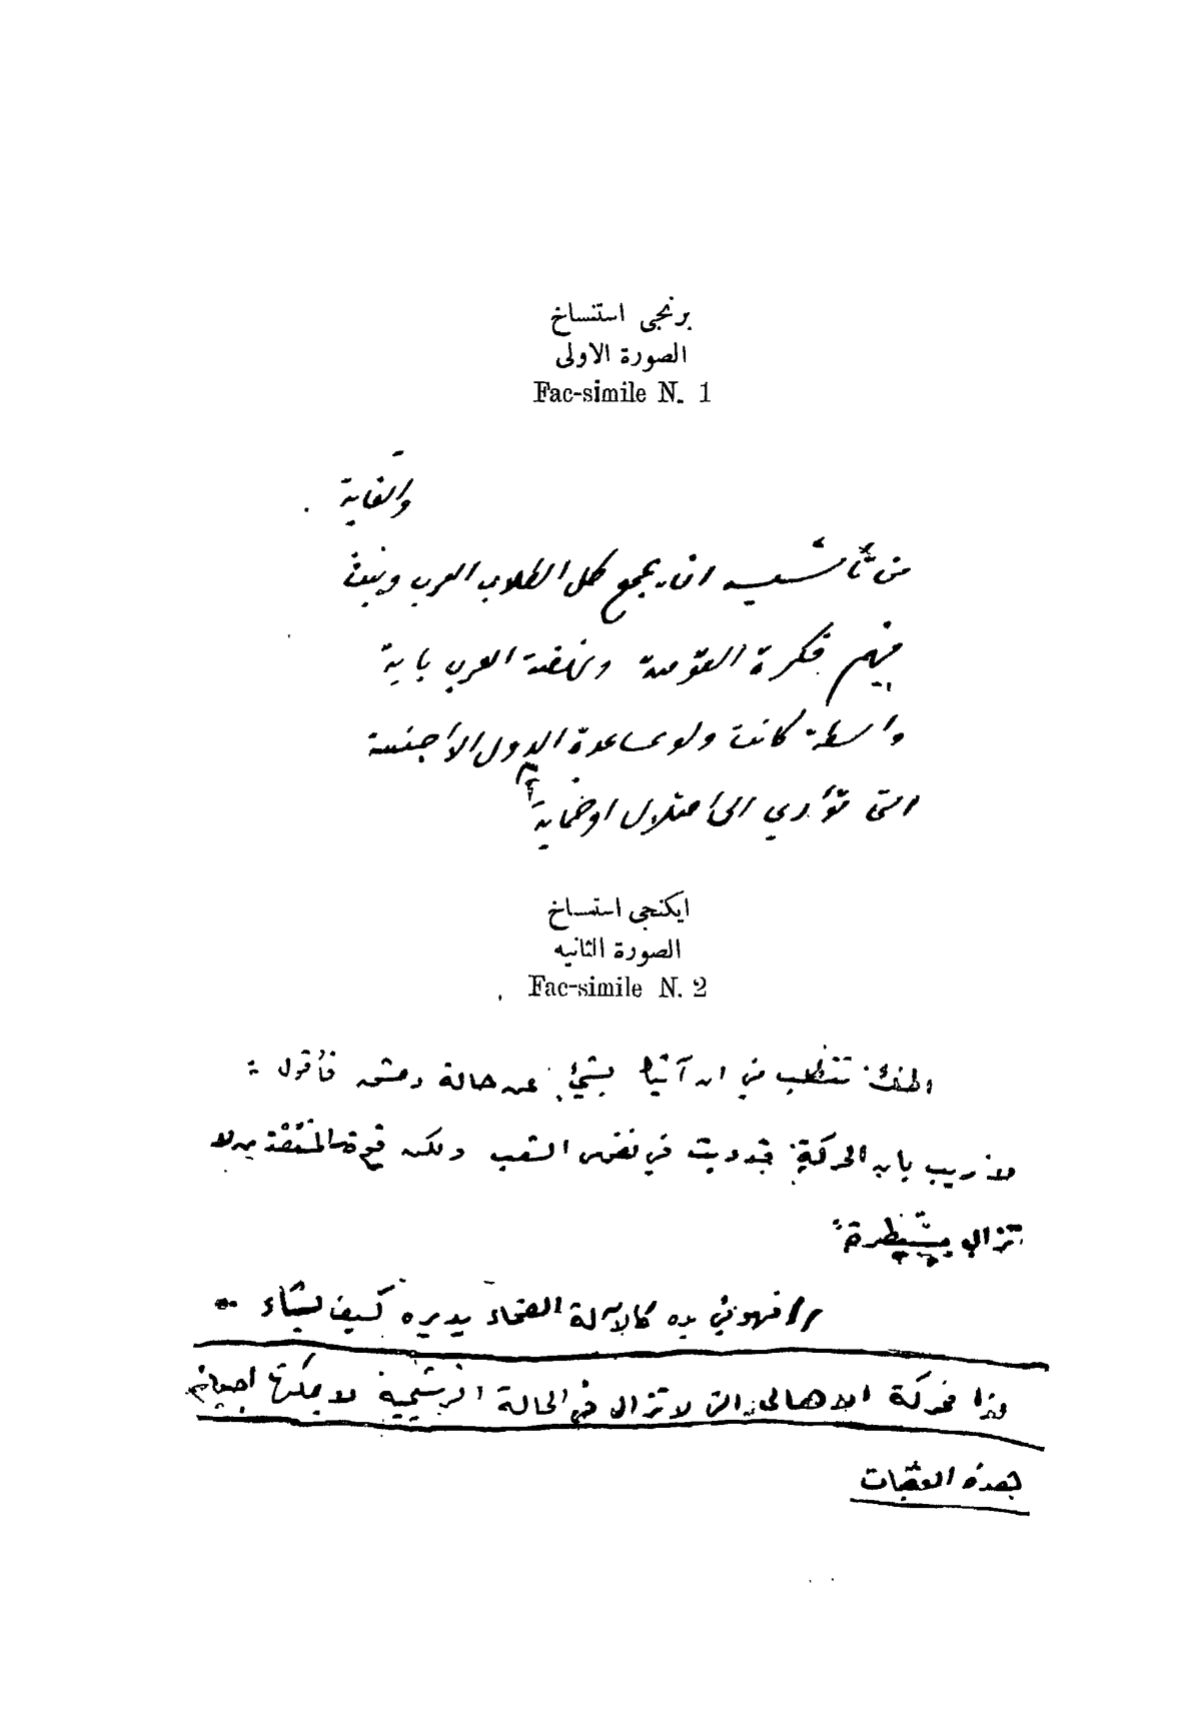 برنجی استنساخ
الصورة الاولى
Fac-simile N. 1
والغاية
من تأسيسه ان يجمع كل الطلاب العرب ويبث
فيهم فكرة القومية ونهضة العرب باية
واسطة كانت ولو بمساعدة الدول الأجنبية
التي تؤدي الى احتلال او حماية
ايكنجی استنساخ
الصورة الثانيه
Fac-simile N. 2
تتطلب مني ان آتيك بشيء عن حالة دمشق فأقول :
لا ريب بان الحركة قد دبت في نفس الشعب ولكن قوة لا
تزال مسيطرة
فهو في يده كالآلة الصماء يديره كيف يشاء
لذا فحركة الاهالي التي لا تزال في الحالة لا يمكنها
بهذه العقبات